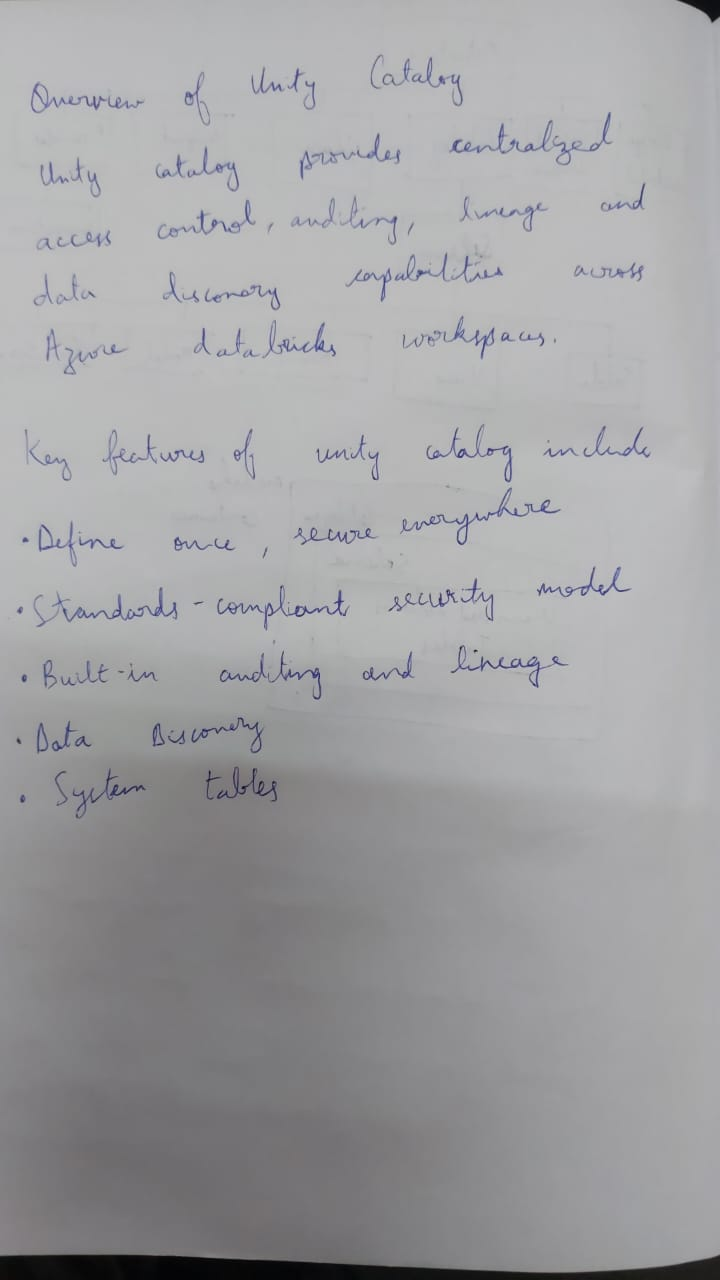 Overview of Unity Catalog
Unity catalog provides centralized
access control, auditing, lineage and
data discovery capabilities across
Azure databricks workspaces.
Key features of unity catalog include
• Define once, secure everywhere
• Standards-compliant security model
• Built-in auditing and lineage
• Data Discovery
• System tables